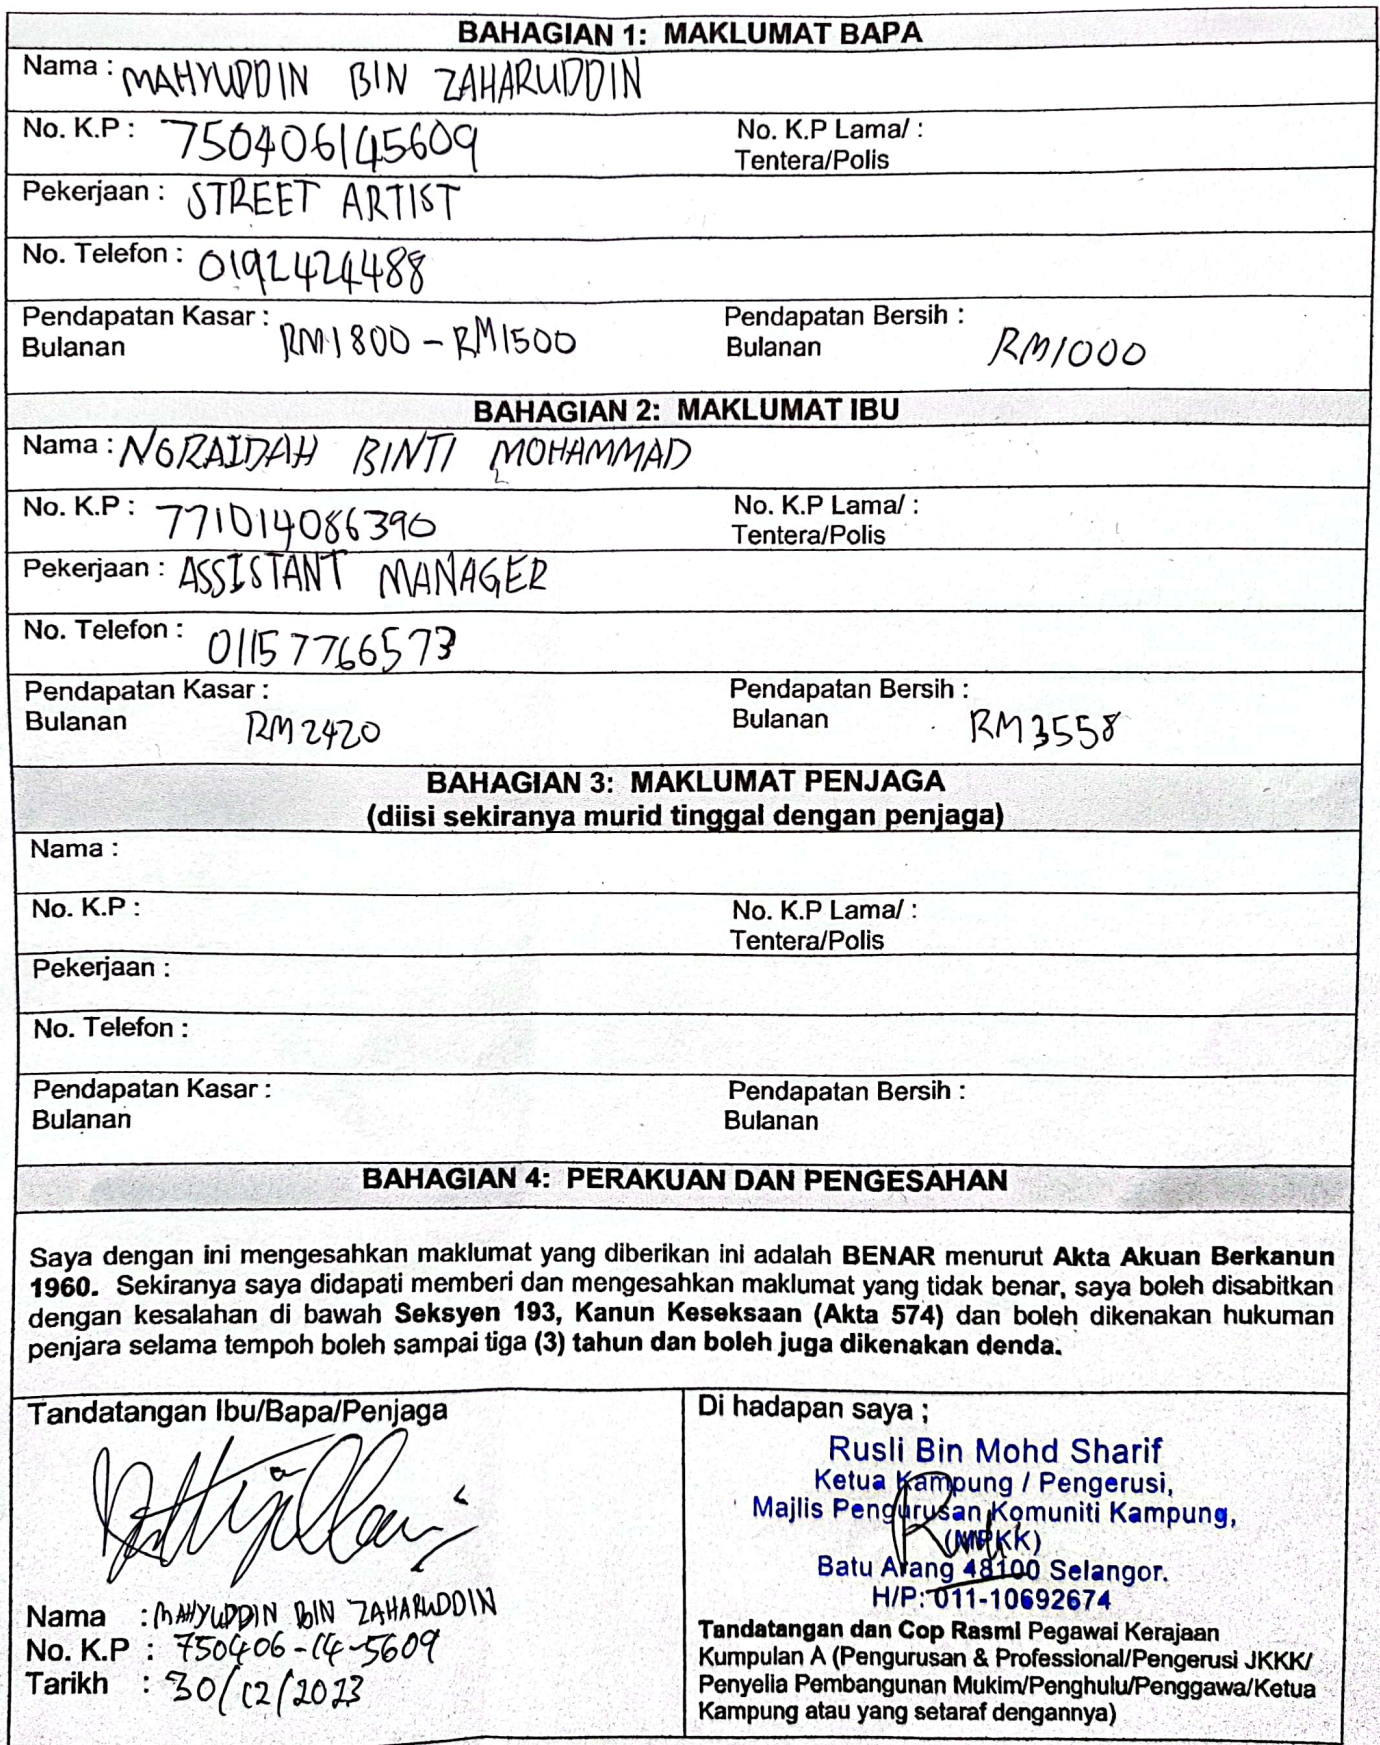 BAHAGIAN 1: MAKLUMAT BAPA
Nama : MAHYUDDIN BIN ZAHARUDDIN
No. K.P : 750406145609 No. K.P Lama/ :
Tentera/Polis
Pekerjaan : STREET ARTIST
No. Telefon : 0192424488
Pendapatan Kasar : RM1800 - RM1500 Pendapatan Bersih : RM1000
Bulanan Bulanan
BAHAGIAN 2: MAKLUMAT IBU
Nama : NORAIDAH BINTI MOHAMMAD
No. K.P : 771014086390 No. K.P Lama/ :
Tentera/Polis
Pekerjaan : ASSISTANT MANAGER
No. Telefon : 01157766573
Pendapatan Kasar : Pendapatan Bersih :
Bulanan RM2420 Bulanan RM3558
BAHAGIAN 3: MAKLUMAT PENJAGA
(diisi sekiranya murid tinggal dengan penjaga)
Nama :
No. K.P : No. K.P Lama/ :
Tentera/Polis
Pekerjaan :
No. Telefon :
Pendapatan Kasar : Pendapatan Bersih :
Bulanan Bulanan
BAHAGIAN 4: PERAKUAN DAN PENGESAHAN
Saya dengan ini mengesahkan maklumat yang diberikan ini adalah BENAR menurut Akta Akuan Berkanun
1960. Sekiranya saya didapati memberi dan mengesahkan maklumat yang tidak benar, saya boleh disabitkan
dengan kesalahan di bawah Seksyen 193, Kanun Keseksaan (Akta 574) dan boleh dikenakan hukuman
penjara selama tempoh boleh sampai tiga (3) tahun dan boleh juga dikenakan denda.
Tandatangan Ibu/Bapa/Penjaga
Nama : MAHYUDDIN BIN ZAHARUDDIN
No. K.P : 750406-14-5609
Tarikh : 30/12/2023
Di hadapan saya ;
Rusli Bin Mohd Sharif
Ketua Kampung / Pengerusi,
Majlis Pengurusan Komuniti Kampung,
(MPKK)
Batu Arang 48100 Selangor.
H/P: 011-10692674
Tandatangan dan Cop Rasmi Pegawai Kerajaan
Kumpulan A (Pengurusan & Professional/Pengerusi JKKK/
Penyelia Pembangunan Mukim/Penghulu/Penggawa/Ketua
Kampung atau yang setaraf dengannya)